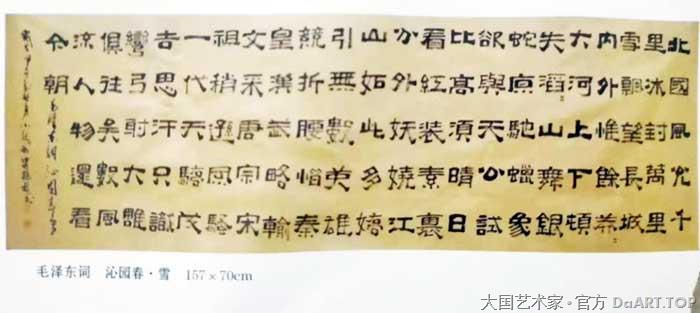 北國風光千
里冰封萬里
雪飄望長城
内外惟餘莽
大河上下頓
失滔山舞銀
蛇原馳蠟象
欲與天公試
比高須晴日
看紅裝素裏
分外妖嬈江
山如此多嬌
引無數英雄
競折腰惜秦
皇漢武略輸
文采唐宗宋
祖稍遜風騷
一代天驕成
吉思汗只識
彎弓射大雕
俱往矣數風
流人物還看
今朝 毛澤東詞沁園春雪
毛泽东词 沁园春·雪 157×70cm
大国艺术家·官方 DaART.TOP